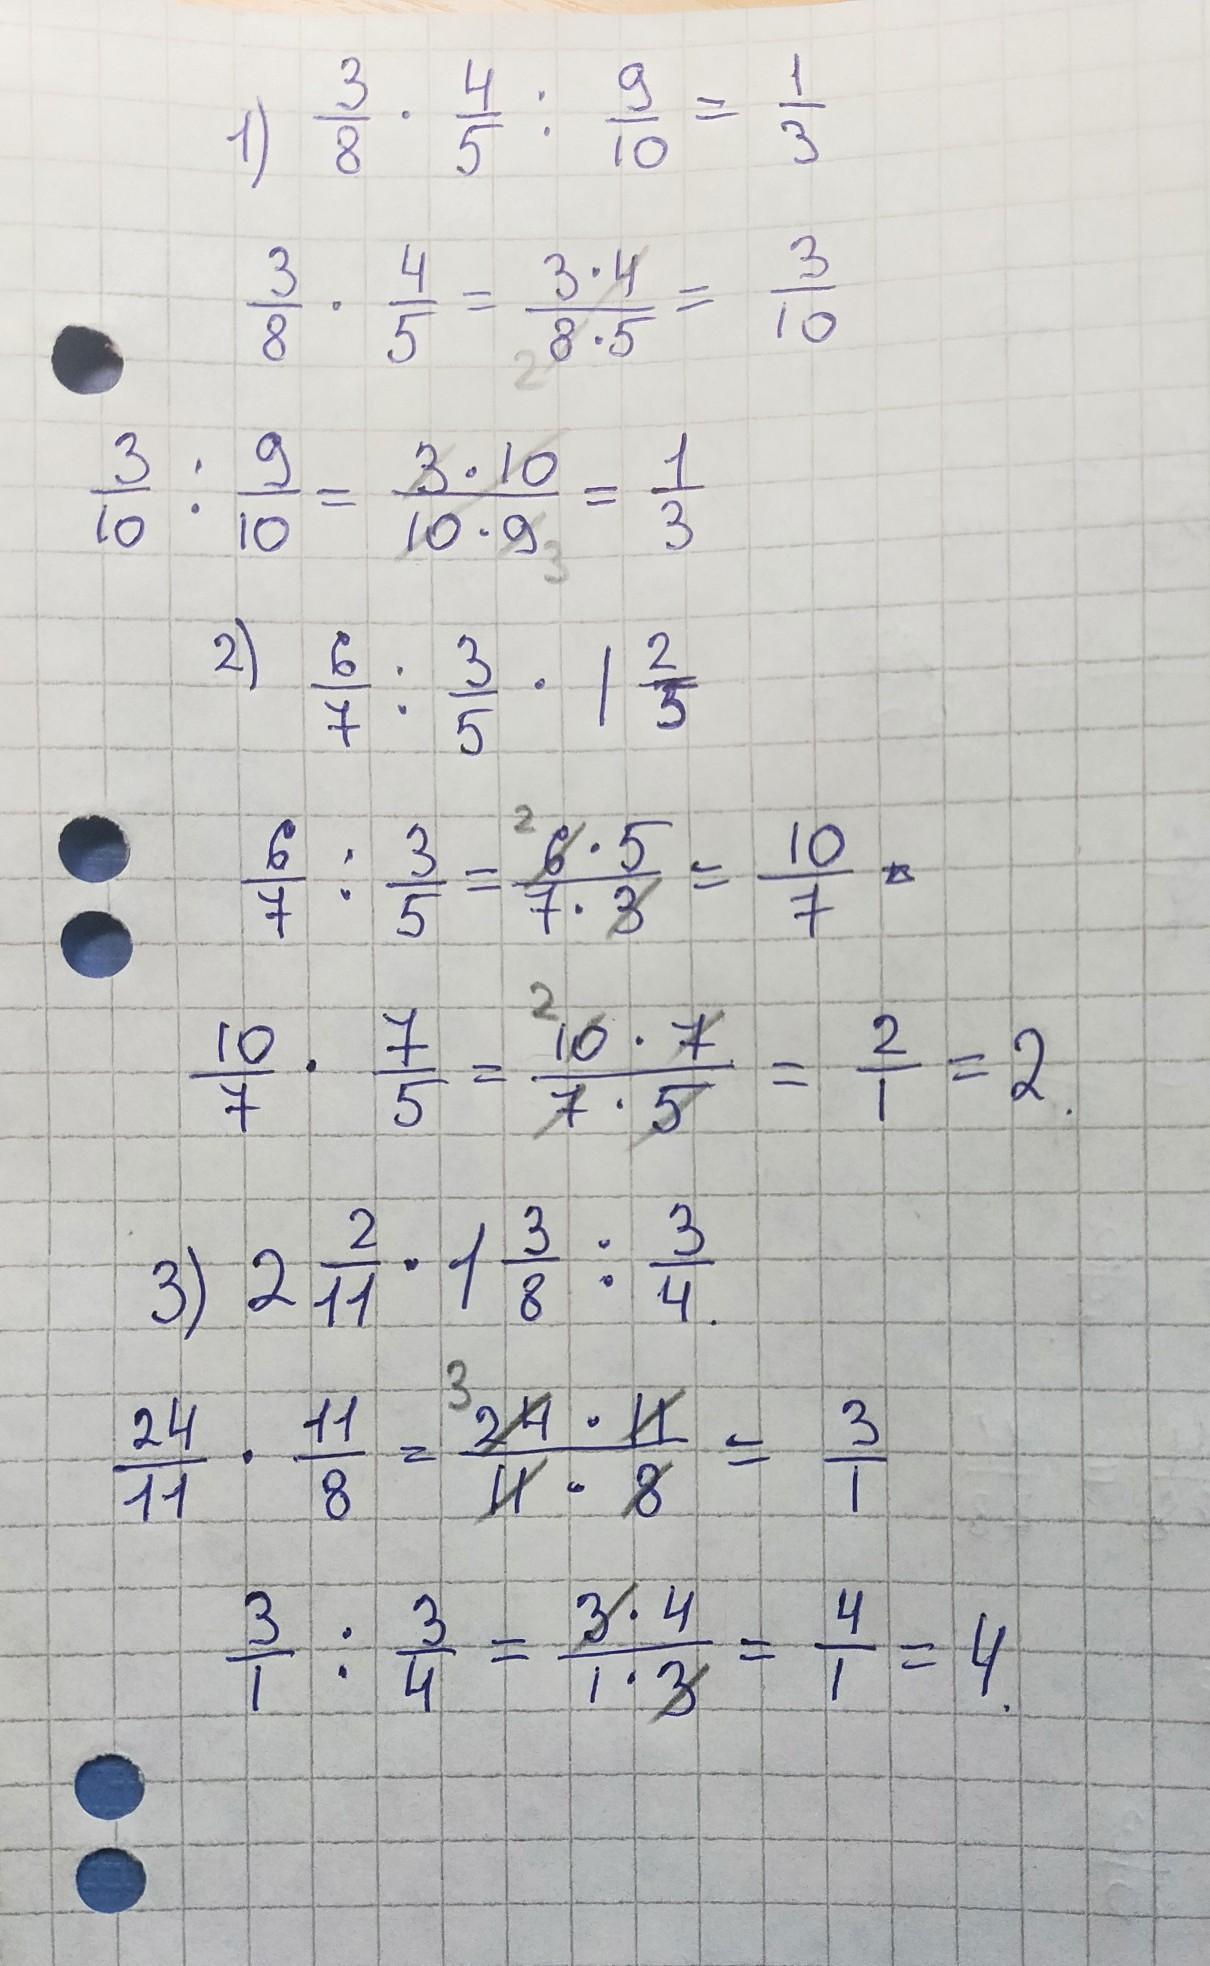 1) 3/8 · 4/5 : 9/10 = 1/3
3/8 · 4/5 = 3·4/8·5 = 3/10
2
3/10 : 9/10 = 3·10/10·9 = 1/3
3
2) 6/7 : 3/5 · 1 2/5
2
6/7 : 3/5 = 6·5/7·3 = 10/7
2
10/7 · 7/5 = 10·7/7·5 = 2/1 = 2.
3) 2 2/11 · 1 3/8 : 3/4.
3
24/11 · 11/8 = 24·11/11·8 = 3/1
3/1 : 3/4 = 3·4/1·3 = 4/1 = 4.